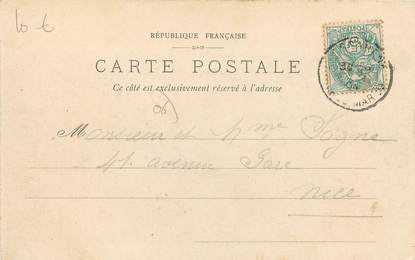 10 €
RÉPUBLIQUE FRANÇAISE
CARTE POSTALE
Ce côté est exclusivement réservé à l'adresse
06)
Monsieur et Mme
41. avenue Gare
Nice